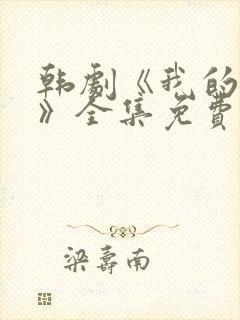 韩劇《我的
》全集免費
梁壽南